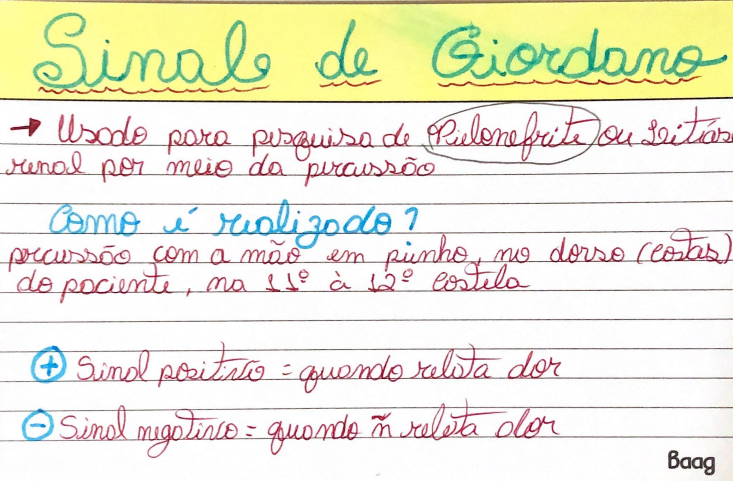 Sinal de Giordano
→ Usado para pesquisa de Pielonefrite ou Leitías
renal por meio da percussão
Como é realizado?
percussão com a mão em punho, no dorso (costas)
do paciente, na 11º à 12º costela
+ Sinal positivo = quando relata dor
- Sinal negativo = quando ñ relata dor
Baag